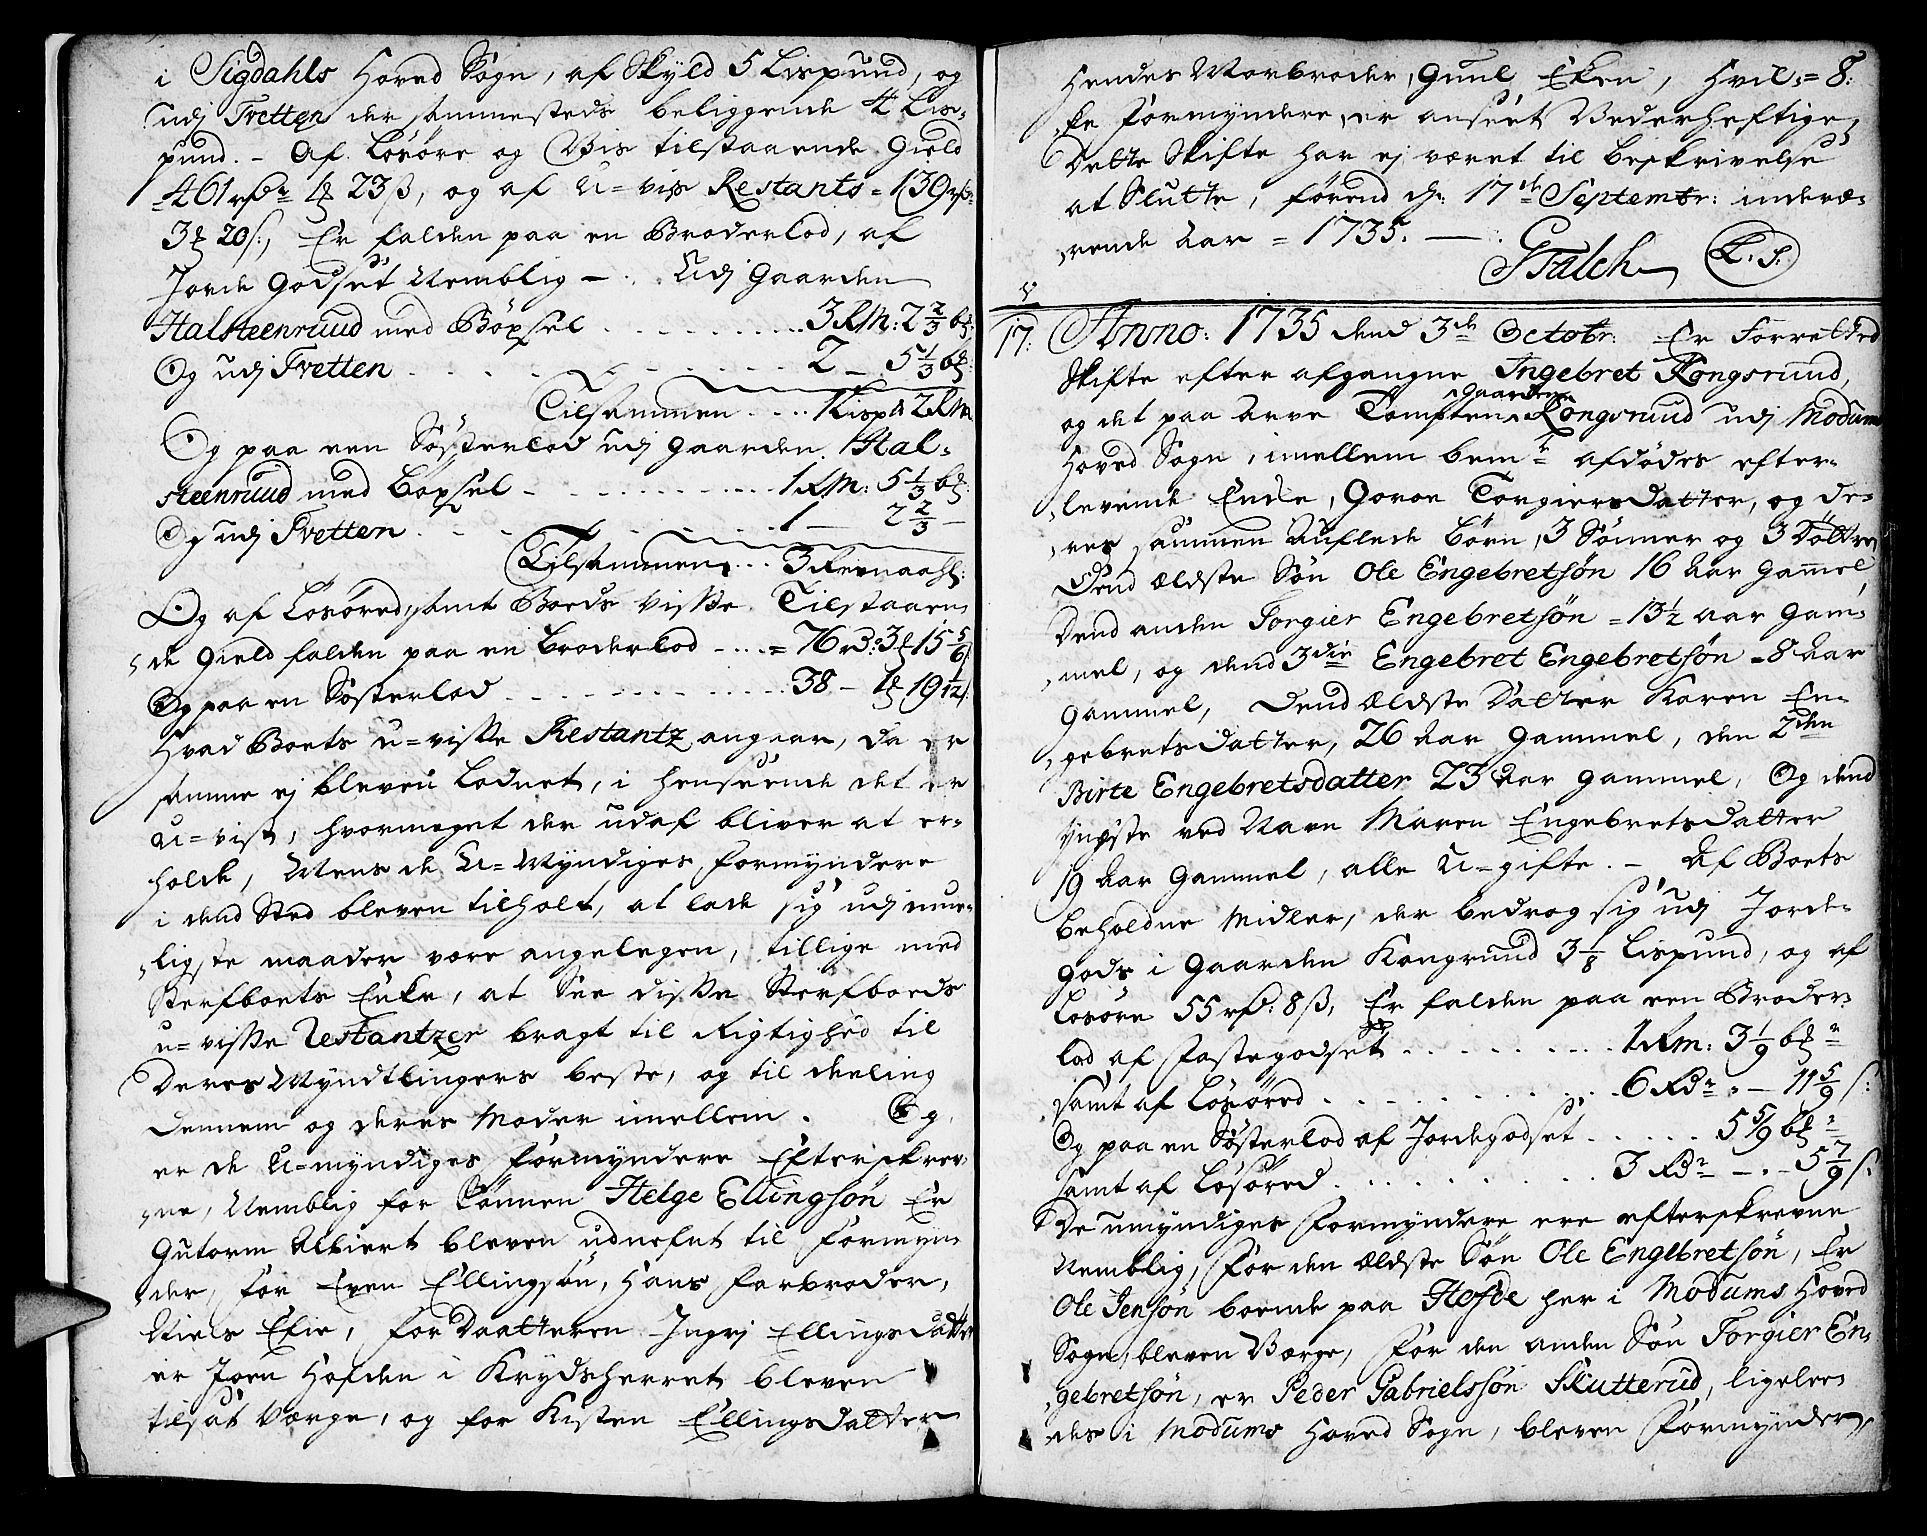 i Sigdahls Hoved Sogn, af Skyld 5 Lispund, og
udj Tvetten der sammesteds beliggende 4 Lis-
pund. - Af Løsøre og Vis tilstaaende Gield
461 rdr 1 23 ß, og af U=vis Restants = 139 rdr
3 20 ß, Er falden paa en Broderlod, af
Jorde Godset Nemblig - . Udj Gaarden
Halsteenruud med Böxsel . . . . . . . 3 Rm: 2 2/3 bß:
Og udj Tvetten . . . . . . . 2 - 5 1/3 bß:
Tilsammen . . . . 1 Lispd 2 Rm
Og paa een Søsterlod udj gaarden Hal-
steenruud med Böxsel - . . . . . . . 1 Rm: 5 1/3 bß:
Og udj Tvetten . . . . . . . 1 - 2 2/3 -
Tilsammen . . . 3 Remaaßl:
Og af Løsøred, samt Boeds visse Tilstaaen-
de gield falden paa en Broderlod - . . . = 76 rd: 3 15 5/6 ß
Og paa en Søsterlod . . . . . . . 38 - 1 19 11/12 ß:
Hvad Boets u=visse Restantz angaar, da er
samme ej bleven Lodnet, i henseende det er
u=vist, hvormeget der udaf bliver at er-
holde, Mens de U=Myndiges Formyndere
i dend Sted bleven tilholt, at lade sig udj muu-
ligste maader være angelegen, tillige med
Sterfboets Enke, at See disse Sterfboeds
u=visse Restantzer bragt til Rigtighed til
Deres Myndtlingers beste, og til deeling
dennem og deres Moder imellem. Og
er de U=myndiges Formyndere Efterskrev-
ne, Nemblig for Sönnen Helge Ellingsøn Er
Gutorm Albiert bleven udnefnt til Formyn-
der, for Even Ellingsøn, Hans Farbroder,
Niels Efie, for Daatteren Ingrj Ellingsdatter
er Joen Hofden i Krydsherret bleven
tilsat Værge, og for Kisten Ellingsdatter
Hendes Morbroder, Guul Eken, Hvil-= 8:
ke Formyndere er anseet Vederheftige,
Dette Skifte har ej været til beskrivelse
at Slutte, förend d: 17de Septembr: indevæ-
rende Aar = 1735. -
GFalch L. S.
17: Anno: 1735 dend 3de Octobr: Er Forretted
Skifte efter afgangne Ingebret Kongsruud,
og det paa Arve Tompten Gaarden Kongsruud udj Modums
Hoved Sogn, imellem bemte afdødes efter-
levende Enke, Goroe Torgiersdatter, og de-
res sammen Auflede børn, 3 Sönner og 3 Döttre,
Dend ældste Søn Ole Engebretsøn 16 Aar gamel,
Dend anden Torgier Engebretsøn = 13 1/2 Aar Gam-
mel, og dend 3die Engebret Engebretsøn = 8 Aar
gammel, Dend ældste Datter Karen En-
gebretsdatter, 26 Aar Gammel, den 2den
Birte Engebretsdatter 23 Aar gammel, Og dend
yngste ved Navn Maren Engebretsdatter
19 Aar Gammel, alle U=gifte. - Af Boets
beholdne Midler, der bedrog sig udj Jorde-
gods i Gaarden Kongruud 3 1/8 Lispund, og af
Løsøre 55 rdr: 8 ß, Er falden paa een Broder-
lod af Fastegodset . . . . . . . 1 Rm: 3 1/9 bß
Samt af Løsøred . . . . . . . 6 Rdr . - 11 5/9 ß:
Og paa en Søsterlod af Jordegodset . . . . . 5 5/9 bß
samt af Løsøred . . . . . . . 3 Rdr - . - 5 7/9 ß:
De umyndiges Formyndere ere efterskrevne
Nemblig, for den ældste Søn Ole Engebretsøn, Er
Ole Jensøn boende paa Hofde her i Modums Hoved
Sogn, bleven Værge, for den anden Søn Torgier En-
gebretsøn, er Peder Gabrielssøn Skutterud, ligelee-
des i Modums Hoved Sogn, bleven Formynder,